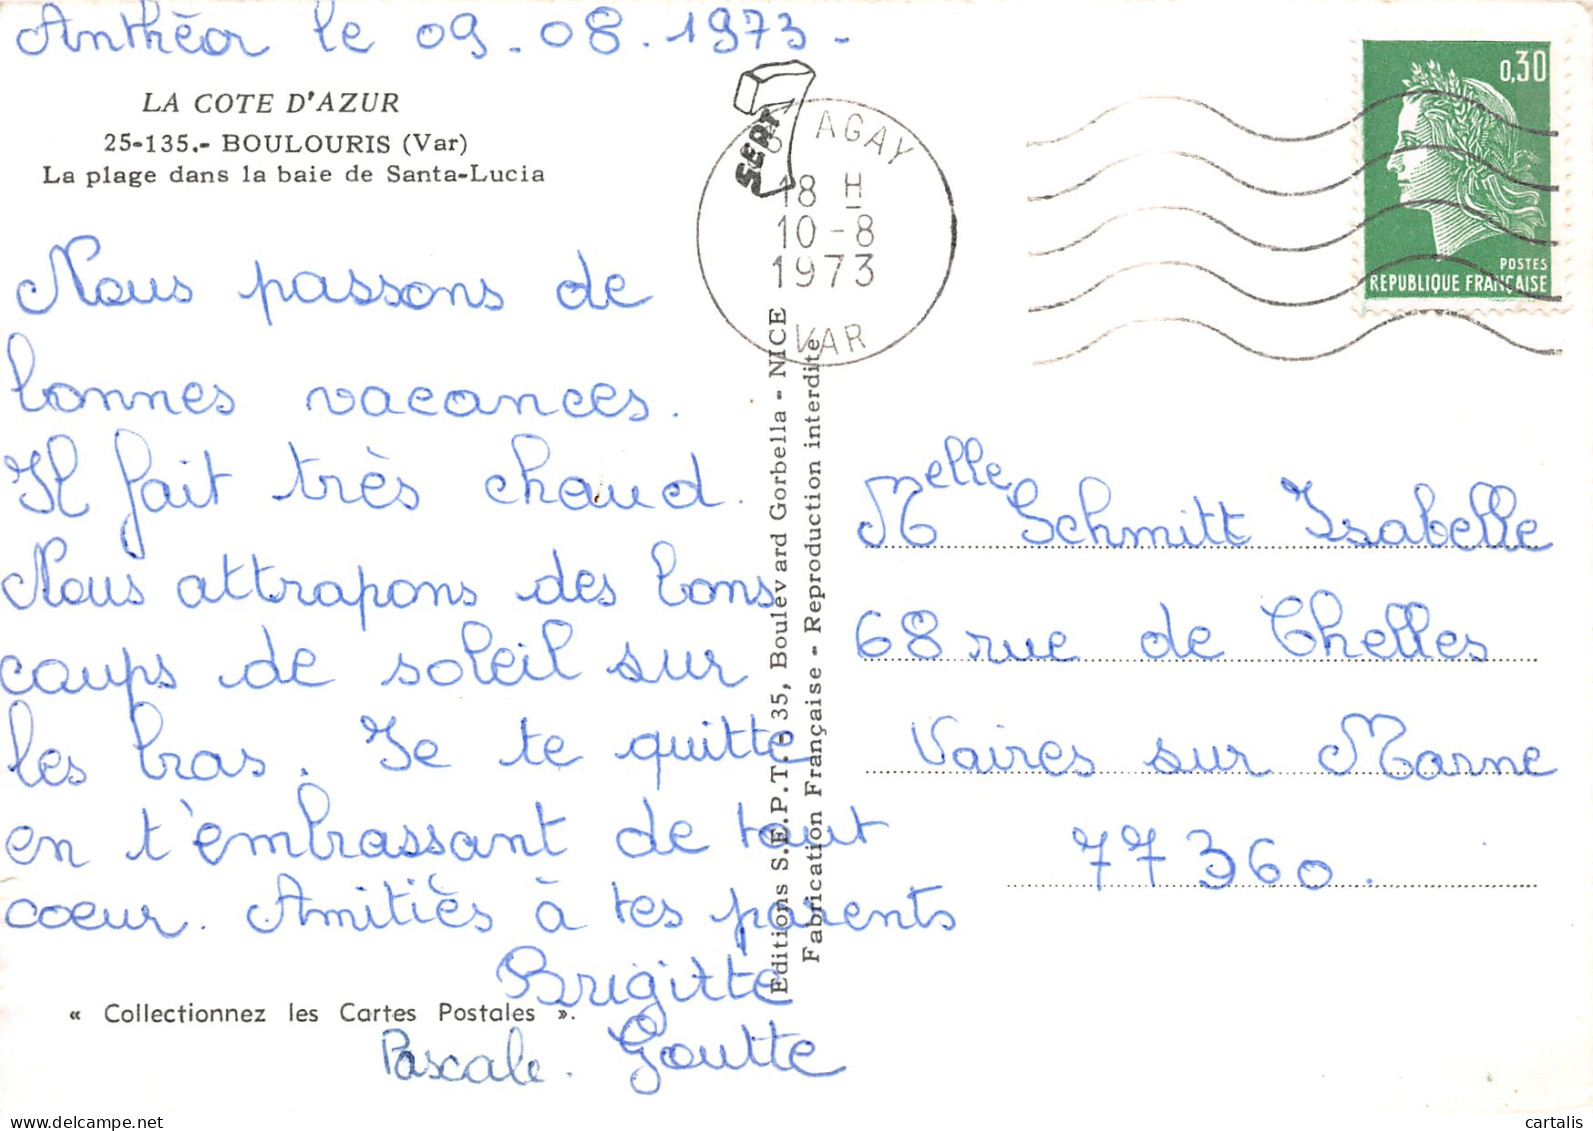 Anthéor le 09-08.1973-
LA COTE D'AZUR
25-135.- BOULOURIS (Var)
La plage dans la baie de Santa-Lucia
Nous passons de
bonnes vacances.
Il fait très chaud.
Nous attrapons des bons
coups de soleil sur
les bras. Je te quitte
en t'embrassant de tout
coeur. Amitiés à tes parents
Brigitte
Pascale. Goutte
« Collectionnez les Cartes Postales ».
SEPT
Editions S.E.P.T. - 35, Boulevard Gorbella - NICE
Fabrication Française - Reproduction interdite
AGAY
18 H
10-8
1973
VAR
0,30
POSTES
REPUBLIQUE FRANÇAISE
Melle Schmitt Isabelle
68 rue de Chelles
Vaires sur Marne
77360.
delcampe.net
cartalis